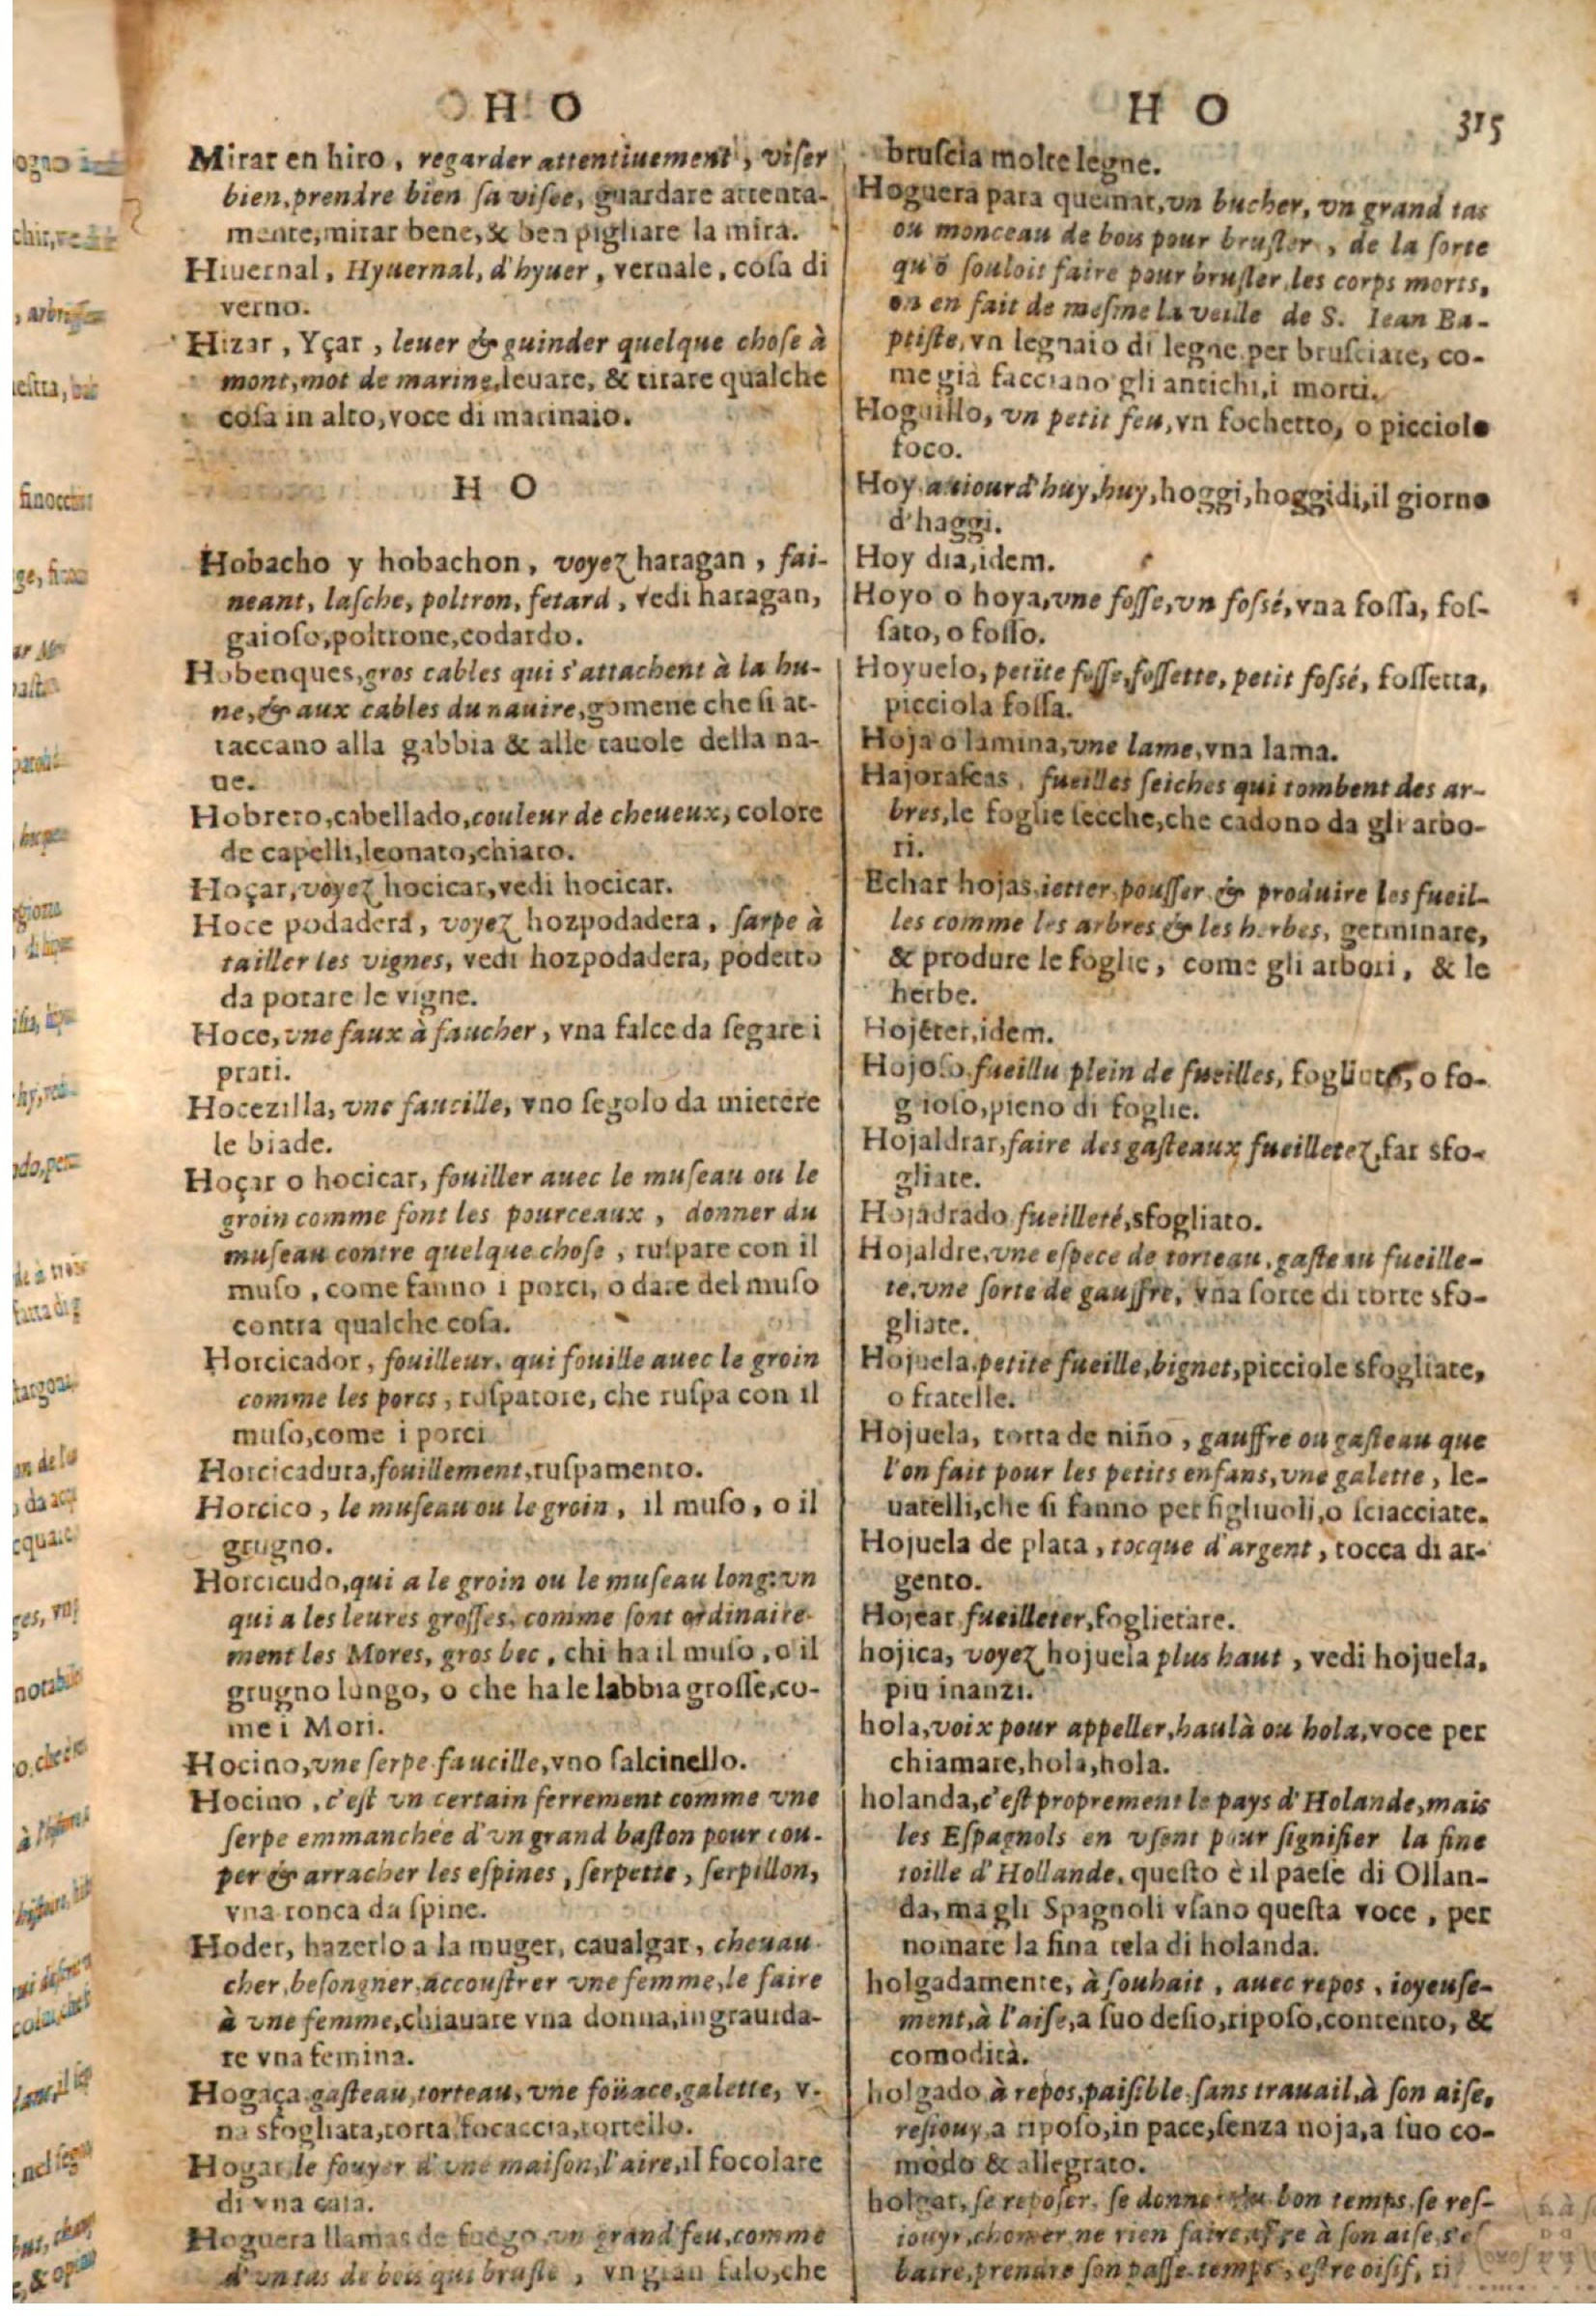 H O
Mirar en hiro, regarder attentiuement, viſer
bien, prendre bien ſa viſee, guardare attenta-
mente, mirar bene, & ben pigliare la mira.
Hiuernal, Hyuernal, d'hyuer, vernale, coſa di
verno.
Hizar, Yçar, leuer & guinder quelque choſe à
mont, mot de marine, leuare, & tirare qualche
coſa in alto, voce di marinaio.
H O
Hobacho y hobachon, voyez haragan, fai-
neant, laſche, poltron, fetard, vedi haragan,
gaioſo, poltrone, codardo.
Hobenques, gros cables qui s'attachent à la hu-
ne, & aux cables du nauire, gomene che ſi at-
taccano alla gabbia & alle tauole della na-
ue.
Hobrero, cabellado, couleur de cheueux, colore
de capelli, leonato, chiaro.
Hoçar, voyez hocicar, vedi hocicar.
Hoce podadera, voyez hozpodadera, ſarpe à
tailler les vignes, vedi hozpodadera, podetto
da potare le vigne.
Hoce, vne faux à faucher, vna falce da ſegare i
prati.
Hocezilla, vne faucille, vno ſegolo da mietere
le biade.
Hoçar o hocicar, fouiller auec le muſeau ou le
groin comme font les pourceaux, donner du
muſeau contre quelque choſe, ruſpare con il
muſo, come fanno i porci, o dare del muſo
contra qualche coſa.
Horcicador, fouilleur, qui fouille auec le groin
comme les porcs, ruſpatore, che ruſpa con il
muſo, come i porci
Horcicadura, fouillement, ruſpamento.
Horcico, le muſeau ou le groin, il muſo, o il
grugno.
Horcicudo, qui a le groin ou le muſeau long: vn
qui a les leures groſſes, comme ſont ordinaire-
ment les Mores, gros bec, chi ha il muſo, o il
grugno lungo, o che ha le labbia groſſe, co-
me i Mori.
Hocino, vne ſerpe faucille, vno falcinello.
Hocino, c'eſt vn certain ferrement comme vne
ſerpe emmanchée d'vn grand baſton pour cou-
per & arracher les eſpines, ſerpette, ſerpillon,
vna ronca da ſpine.
Hoder, hazerlo a la muger, caualgar, cheuau-
cher, beſongner, accouſtrer vne femme, le faire
à vne femme, chiauare vna donna, ingrauida-
re vna femina.
Hogaça gaſteau, torteau, vne foüace, galette, v-
na sfogliata, torta focaccia, tortello.
Hogar le fouyer d'vne maiſon, l'aire, il focolare
di vna caſa.
Hoguera llamas de fuego, vn grand feu, comme
d'vn tas de bois qui bruſle, vn gran falo, che
H O 315
bruſcia molte legne.
Hoguera para quemar, vn bucher, vn grand tas
ou monceau de bois pour bruſler, de la ſorte
qu'õ ſouloit faire pour bruſler les corps morts,
on en fait de meſme la veille de S. Iean Ba-
ptiſte, vn legnaio di legne per bruſciare, co-
me già facciano gli antichi, i morti.
Hoguillo, vn petit feu, vn fochetto, o picciolo
foco.
Hoy auiourd'huy, huy, hoggi, hoggidi, il giorno
d'haggi.
Hoy dia, idem.
Hoyo o hoya, vne foſſe, vn foſsé, vna foſſa, foſ-
ſato, o foſſo.
Hoyuelo, petite foſſe, foſſette, petit foſsé, foſſetta,
picciola foſſa.
Hoja o lamina, vne lame, vna lama.
Hajoraſcas, fueilles ſeiches qui tombent des ar-
bres, le foglie ſecche, che cadono da gli arbo-
ri.
Echar hojas, ietter, pouſſer & produire les fueil-
les comme les arbres & les herbes, germinare,
& produre le foglie, come gli arbori, & le
herbe.
Hojeter, idem.
Hojoſo fueillu plein de fueilles, fogliuto, o fo-
gioſo, pieno di foglie.
Hojaldrar, faire des gaſteaux fueilletez, far sfo-
gliate.
Hojadrado fueilleté, sfogliato.
Hojaldre, vne eſpece de torteau, gaſteau fueille-
te, vne ſorte de gauffre, vna ſorte di torte sfo-
gliate.
Hojuela petite fueille, bignet, picciole sfogliate,
o fratelle.
Hojuela, torta de niño, gauffre ou gaſteau que
l'on fait pour les petits enfans, vne galette, le-
uatelli, che ſi fanno per figliuoli, o ſciacciate.
Hojuela de plata, tocque d'argent, tocca di ar-
gento.
Hojear fueilleter, foglietare.
hojica, voyez hojuela plus haut, vedi hojuela,
piu inanzi.
hola, voix pour appeller, haulà ou hola, voce per
chiamare, hola, hola.
holanda, c'eſt proprement le pays d'Holande, mais
les Eſpagnols en vſent pour ſignifier la fine
toille d'Hollande, queſto è il paeſe di Ollan-
da, ma gli Spagnoli vſano queſta voce, per
nomare la fina tela di holanda.
holgadamente, à ſouhait, auec repos, ioyeuſe-
ment, à l'aiſe, a ſuo deſio, ripoſo, contento, &
comodità.
holgado à repos, paiſible ſans trauail, à ſon aiſe,
reſiouy, a ripoſo, in pace, ſenza noja, a ſuo co-
modo & allegrato.
holgar, ſe repoſer, ſe donner du bon temps, ſe reſ-
iouyr, chomer, ne rien faire, eſtre à ſon aiſe, s'eſ
batre, prendre ſon paſſe-temps, eſtre oiſif, ri